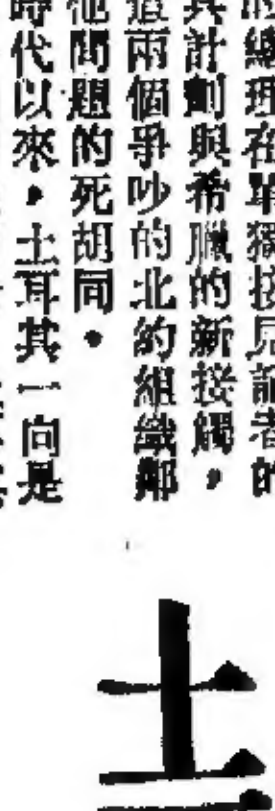 總理在單獨接見記者的
其計劃與希臘的新接觸，
兩個爭吵的北約組織鄰
他問題的死胡同。
時代以來，土耳其一向是
土